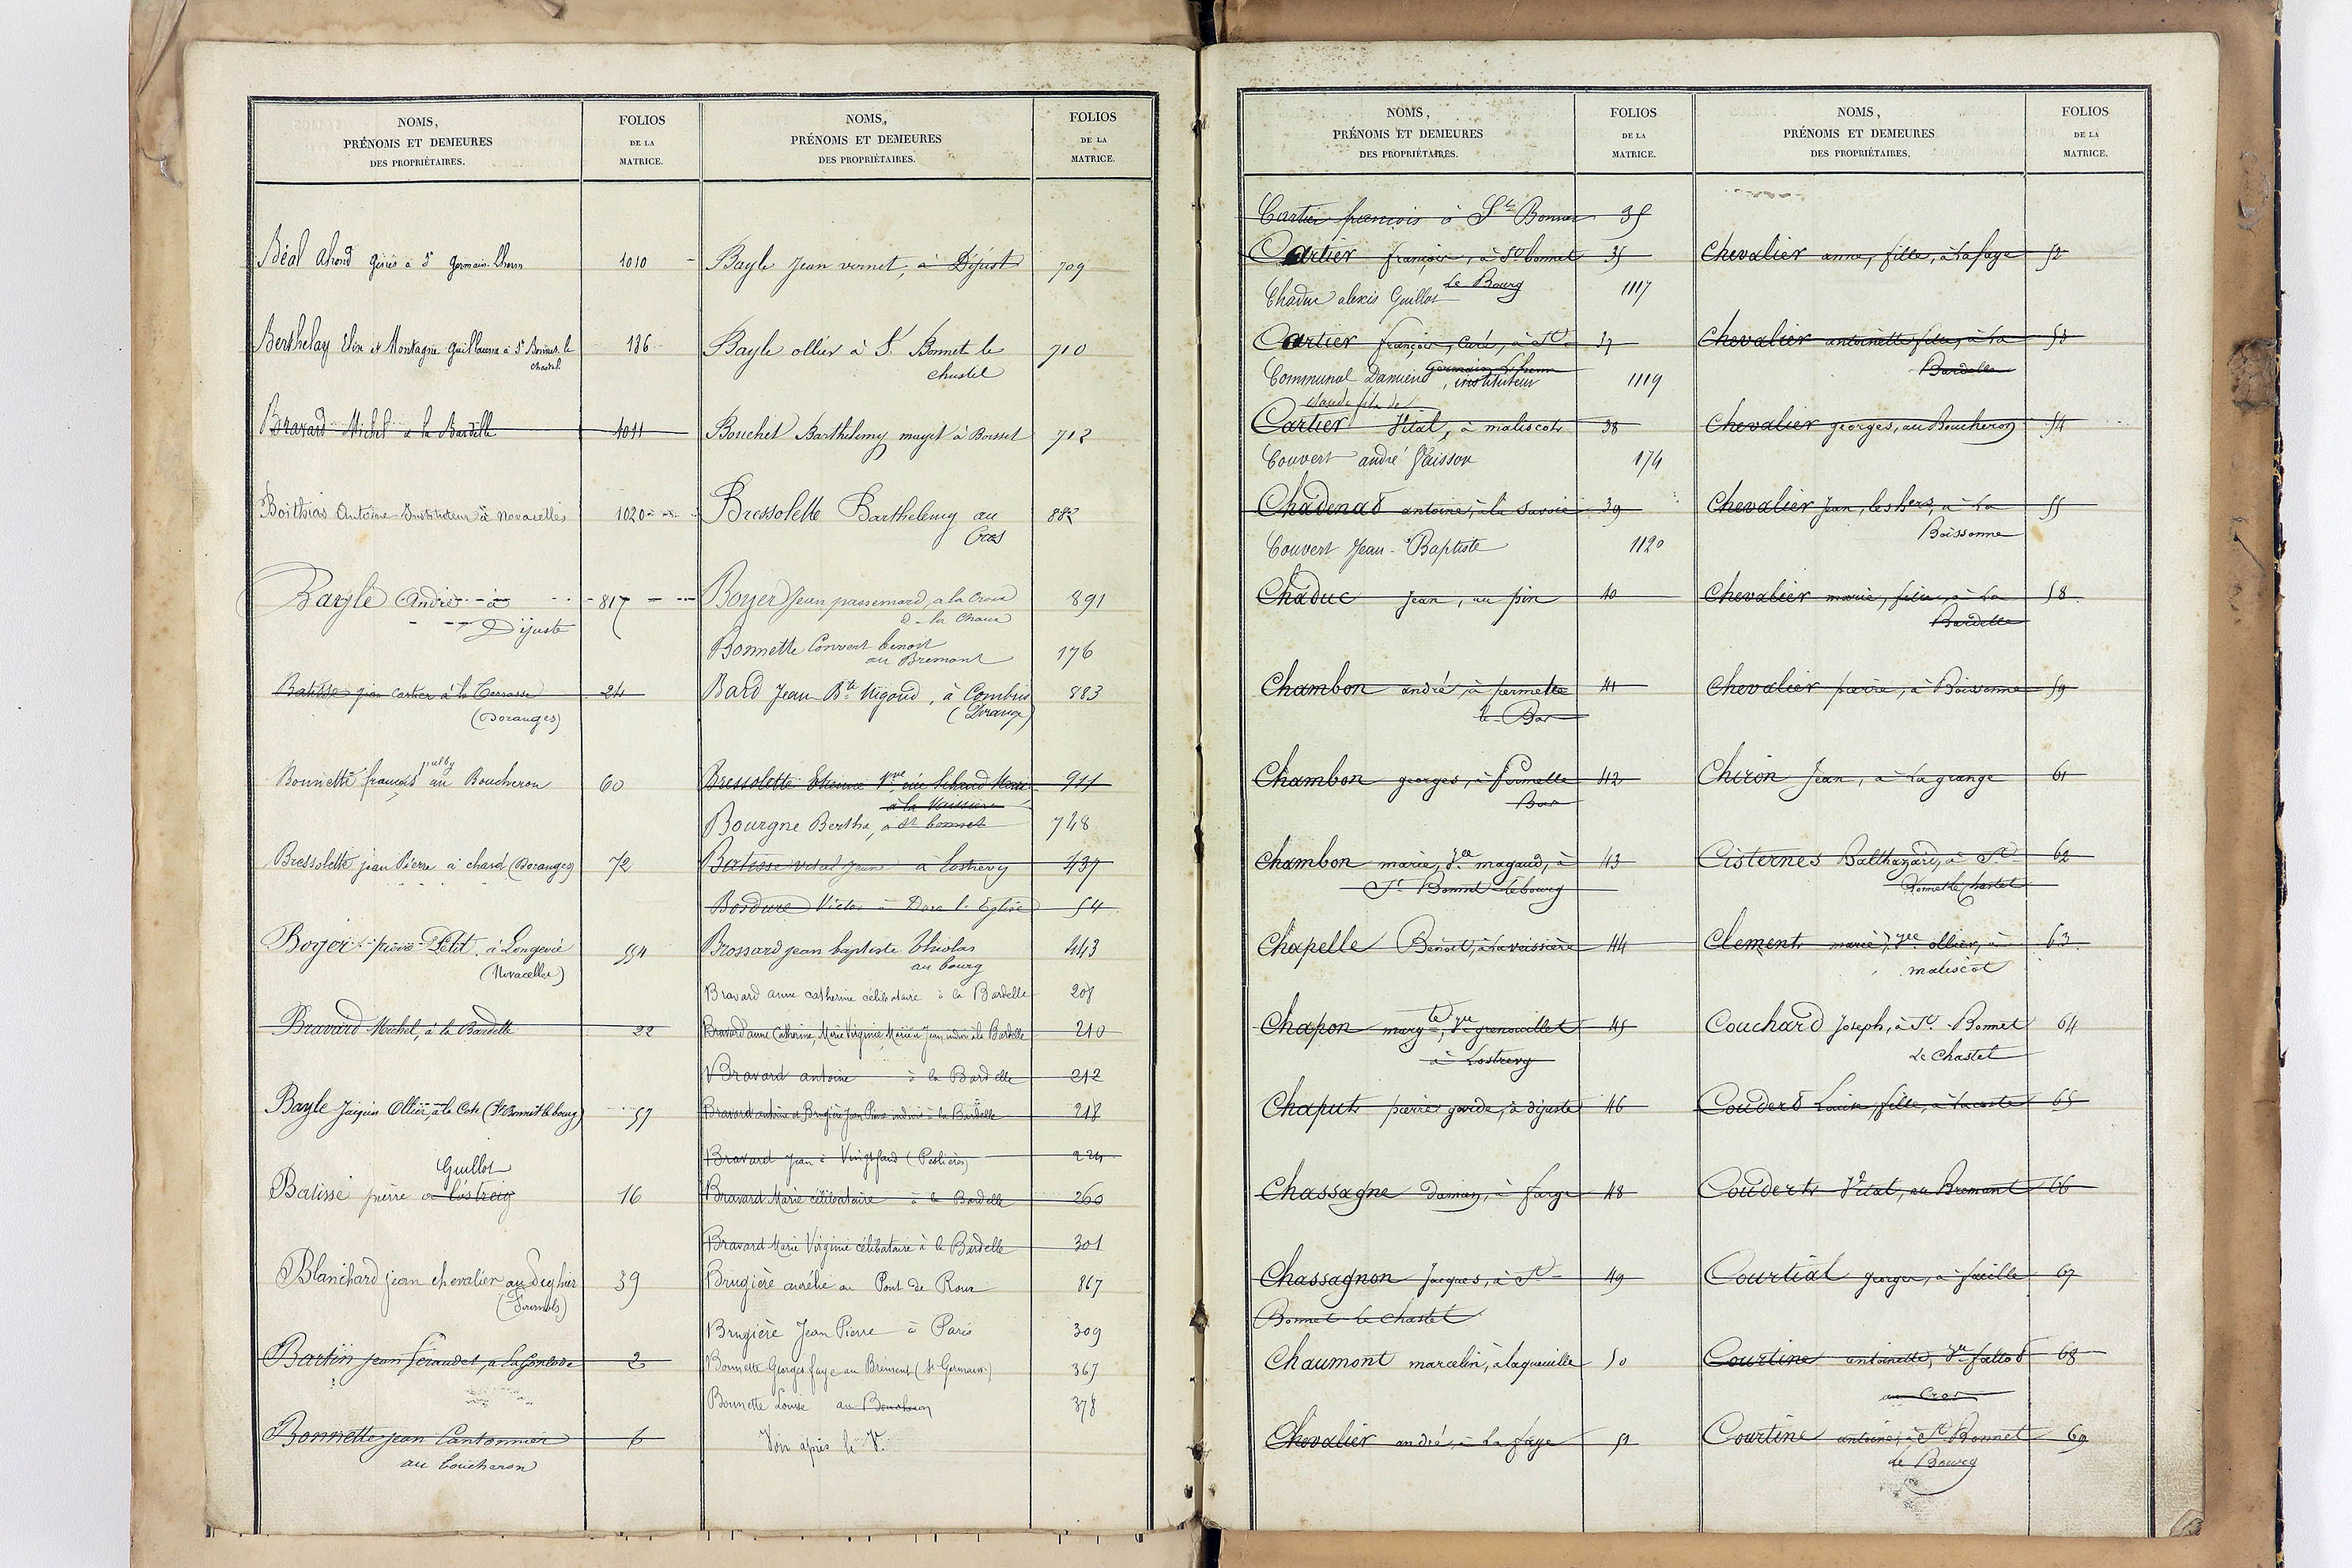 NOMS,
PRÉNOMS ET DEMEURES
DES PROPRIÉTAIRES.
FOLIOS
DE LA
MATRICE.
Béal Ahond à St Germain Lherm 1010
Berthelay Elix et Montagne Guillaume à St Bonnet le 136
Chastel
Bravard Michel à la Bardelle 1011
Boithias Antoine Instituteur à Novacelles 1020
Bayle André à 817
Dijuste
Batisse jean cartier à la Terrasse 24
(Doranges)
Bonnette françois au Boucheron 60
Bressolette jean Pierre à chard (Doranges) 72
Boyer pierre Petit à Longevie 554
(Novacelles)
Bravard Michel, à la Bardelle 22
Bayle Jacques Ollier, à la Cote (St Bonnet le bourg) 57
Guillot
Batisse pierre à Lostreig 16
Blanchard jean chevalier au 39
(Fournols)
Bartin jean feraudet, a 2
Bonnette jean Cantonnier 6
au boucheron
NOMS,
PRÉNOMS ET DEMEURES
DES PROPRIÉTAIRES.
FOLIOS
DE LA
MATRICE.
Bayle Jean vernet, à Dijust 709
Bayle ollier à St Bonnet le 710
chastel
Bouchet Barthélemy mayet à Boisset 712
Bressolette Barthelemy au 882
Cros
Boyer Jean passemard, a la Croix 891
d la Chaux
Bonnette Convert benoit 176
au Bremont
Bard Jean Bte Nigoud, à Combris 883
(Dorange)
Bressolette Etienne Vve née 911
à la Vaissière
Bourgne Berthe, à St bonnet 748
Batisse vital jeune à Lostrevy 437
Bordure Victor à Dore l'Eglise 54
Brossard jean baptiste Chiolas 443
au bourg
Bravard anne catherine célibataire à la Bardelle 208
Bravard anne Catherine, Marie Virginie, Marie et Jean indivis à la Bardelle 210
Bravard antoine à la Bardelle 212
Bravard antoine et Brugière Jean Pierre indivis à la Bardelle 218
Bravard Jean à (Peslières) 224
Bravard Marie célibataire à la Bardelle 260
Bravard Marie Virginie célibataire à la Bardelle 301
Brugière aurélie au Pont de Roux 867
Brugière Jean Pierre à Paris 309
Bonnette Georges faye au Brémont (St Germain) 367
Bonnette Louise au Boucheron 378
Voir après le V.
NOMS,
PRÉNOMS ET DEMEURES
DES PROPRIÉTAIRES.
FOLIOS
DE LA
MATRICE.
Cartier françois à St Bonnet 35
Cartier françois, à St bonnet 35
Le Bourg
Chaduc alexis Guillot 1117
Cartier françois, Curé, à St 37
Germain Lherm
Communal Damien, instituteur 1119
claude fils de
Cartier Vital, à maliscot 38
Couvert andré Vaisson 174
Chadenat antoine, à la Savoie 39
Couvert Jean-Baptiste 1120
Chaduc Jean, au pin 40
Chambon andré, à permelle 41
le Bas
Chambon georges, à Permelle 42
Bas
Chambon marie, Vve magaud, à 43
St Bonnet le bourg
Chapelle Benoit, à la veissière 44
Chapon margte, Vve grenouillet 45
à Lostrevy
Chaput pierre garde, à dijuste 46
Chassagne Damay, à farge 48
Chassagnon Jacques, à St 49
Bonnet le chastel
Chaumont marcelin, à laqueuille 50
Chevalier andré, à La faye 51
NOMS,
PRÉNOMS ET DEMEURES
DES PROPRIÉTAIRES.
FOLIOS
DE LA
MATRICE.
Chevalier anne, fille, à la faye 52
Chevalier antoinette fille, à la 53
Bardelle
Chevalier georges, au Boucheron 54
Chevalier Jean, les hers, à La 55
Boissonne
Chevalier marie, fille, à La 58
Bardelle
Chevalier pierre, à Boissonne 59
Chiron Jean, à La grange 61
Cisternes Balthazard, à St 62
Bonnet le chastel
Clement marie, Vve ollier, à 63
maliscot
Couchard Joseph, à St Bonnet 64
Le Chastel
Couderd Louise, fille, à La coste 65
Coudert Vital, au Bremont 66
Courtial georges, à fueille 67
Courtine antoinette, Vve fattot 68
au Cros
Courtine antoine, à St Bonnet 69
le Bourg